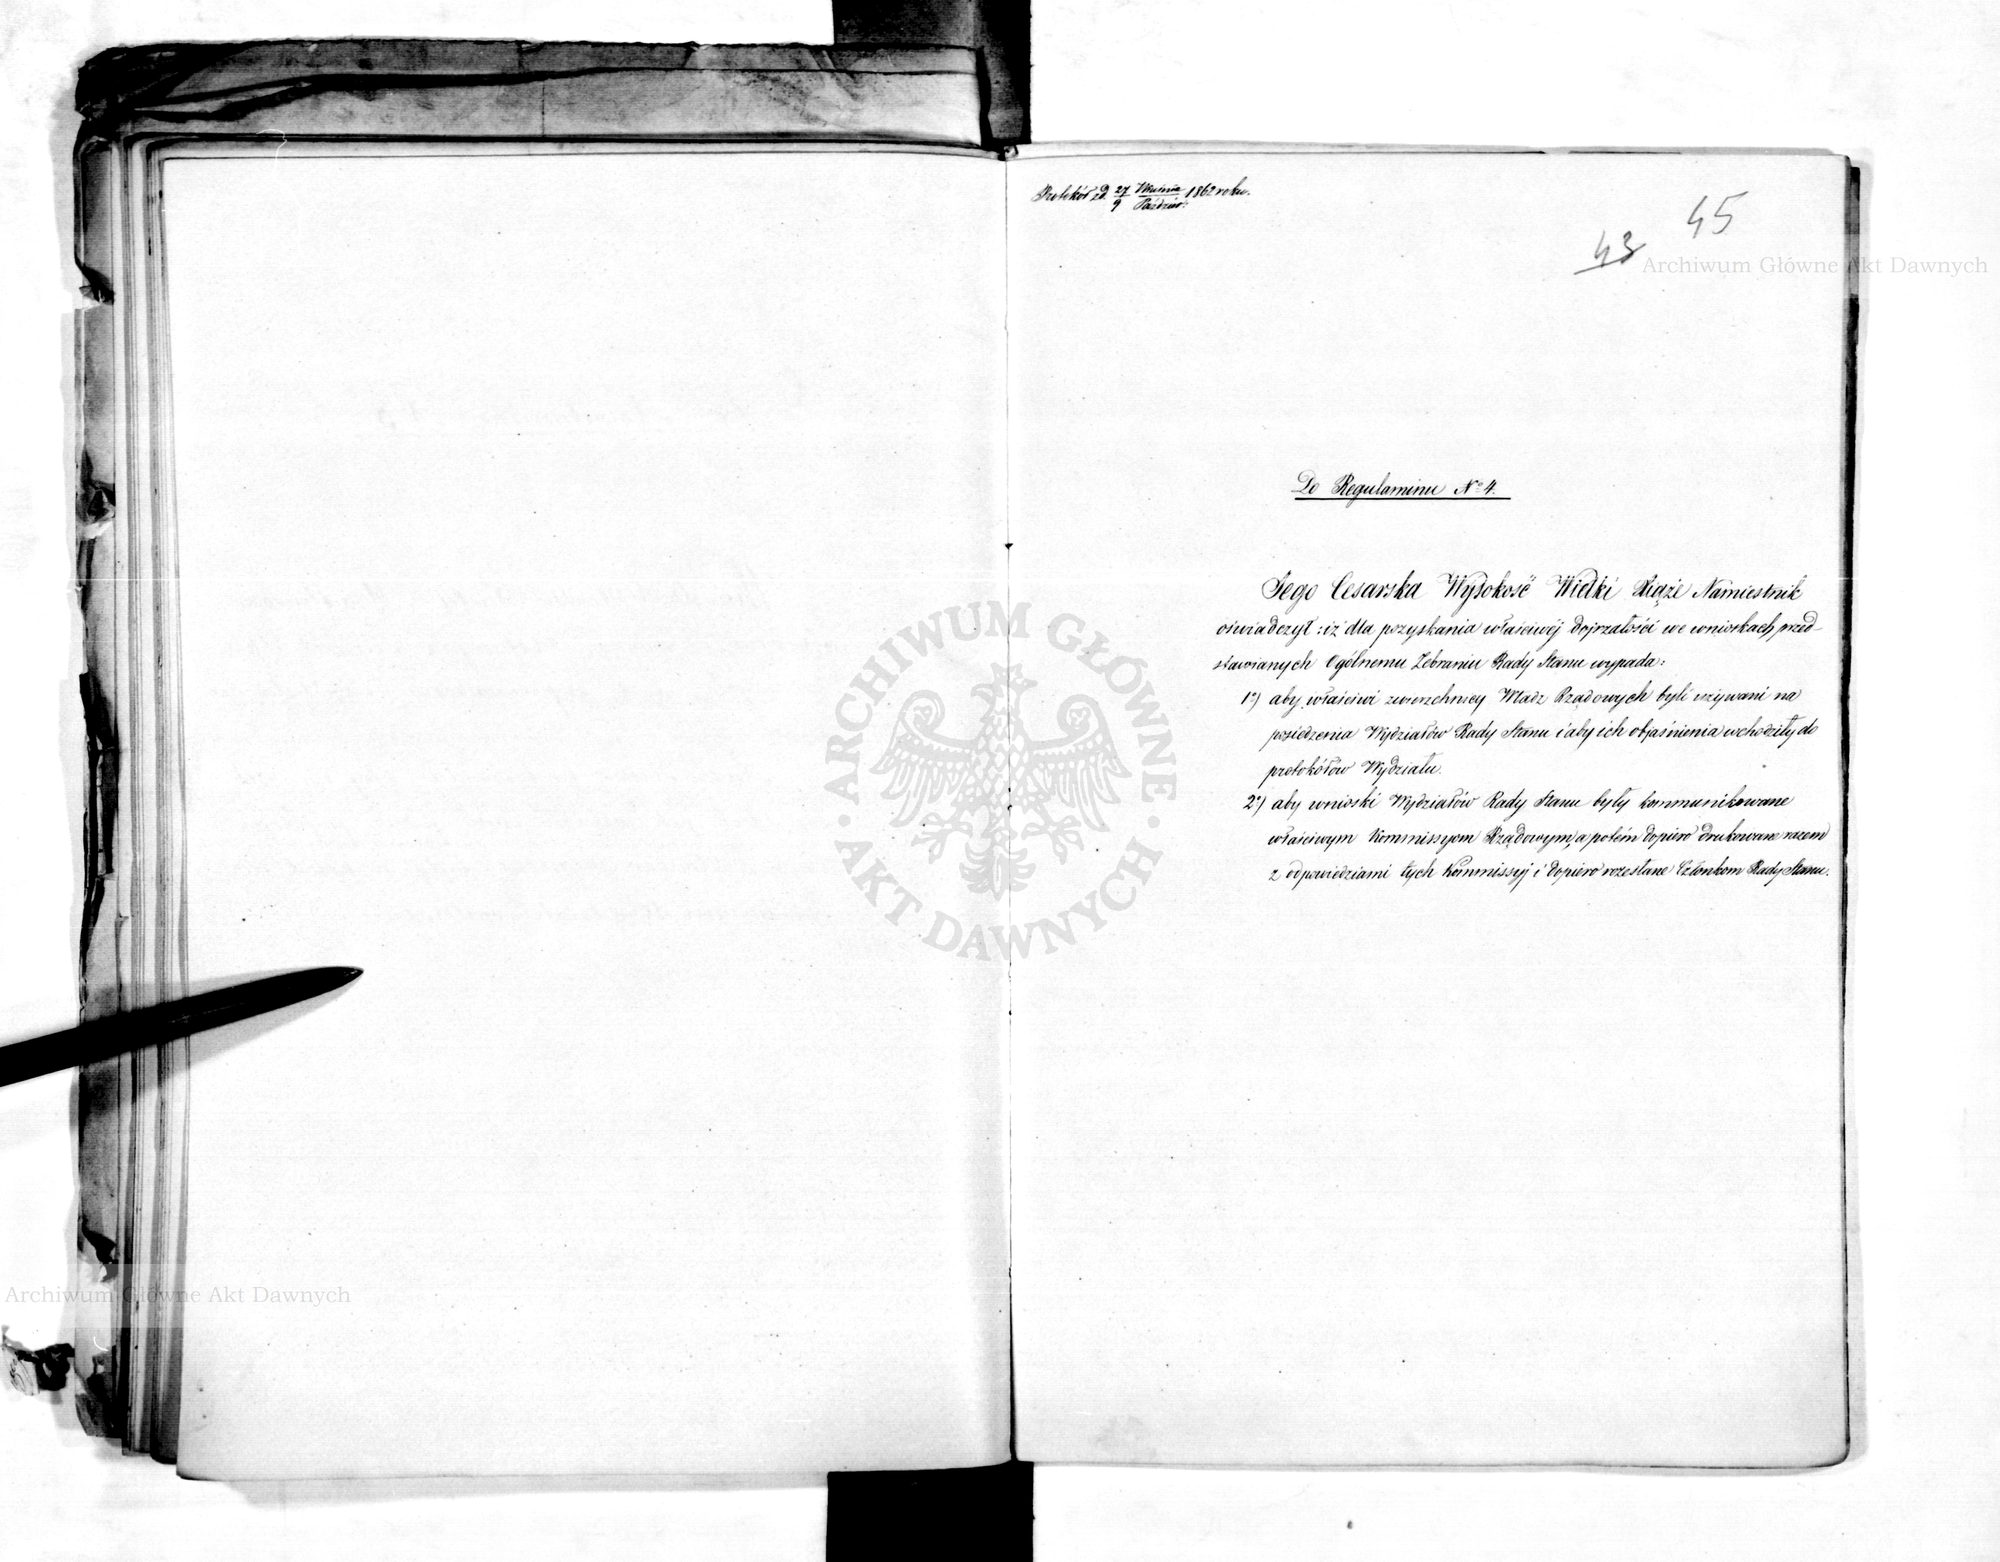 Protokół z d. 27/9 Września/Paździer: 1862 roku.
45
43
De Regulaminu No 4.
Jego Cesarska Wysokość Wielki Xiąże Namiestnik
oświadczył: iż dla pozyskania właściwéj dojrzałości we wnioskach przed-
stawianych Ogólnemu Zebraniu Rady Stanu wypada:
1o) aby właściwi zwierzchnicy Władz Rządowych byli wzywani na
posiedzenia Wydziałów Rady Stanu i aby ich objaśnienia wchodziły do
protokółów Wydziału.
2o) aby wnioski Wydziałów Rady Stanu były kommunikowane
właściwym Kommissyom Rządowym, a potém dopiero drukowane razem
z odpowiedziami tych Kommissyj i dopiero rozesłane Członkom Rady Stanu.
ARCHIWUM GŁÓWNE
AKT DAWNYCH
Archiwum Główne Akt Dawnych
Archiwum Główne Akt Dawnych